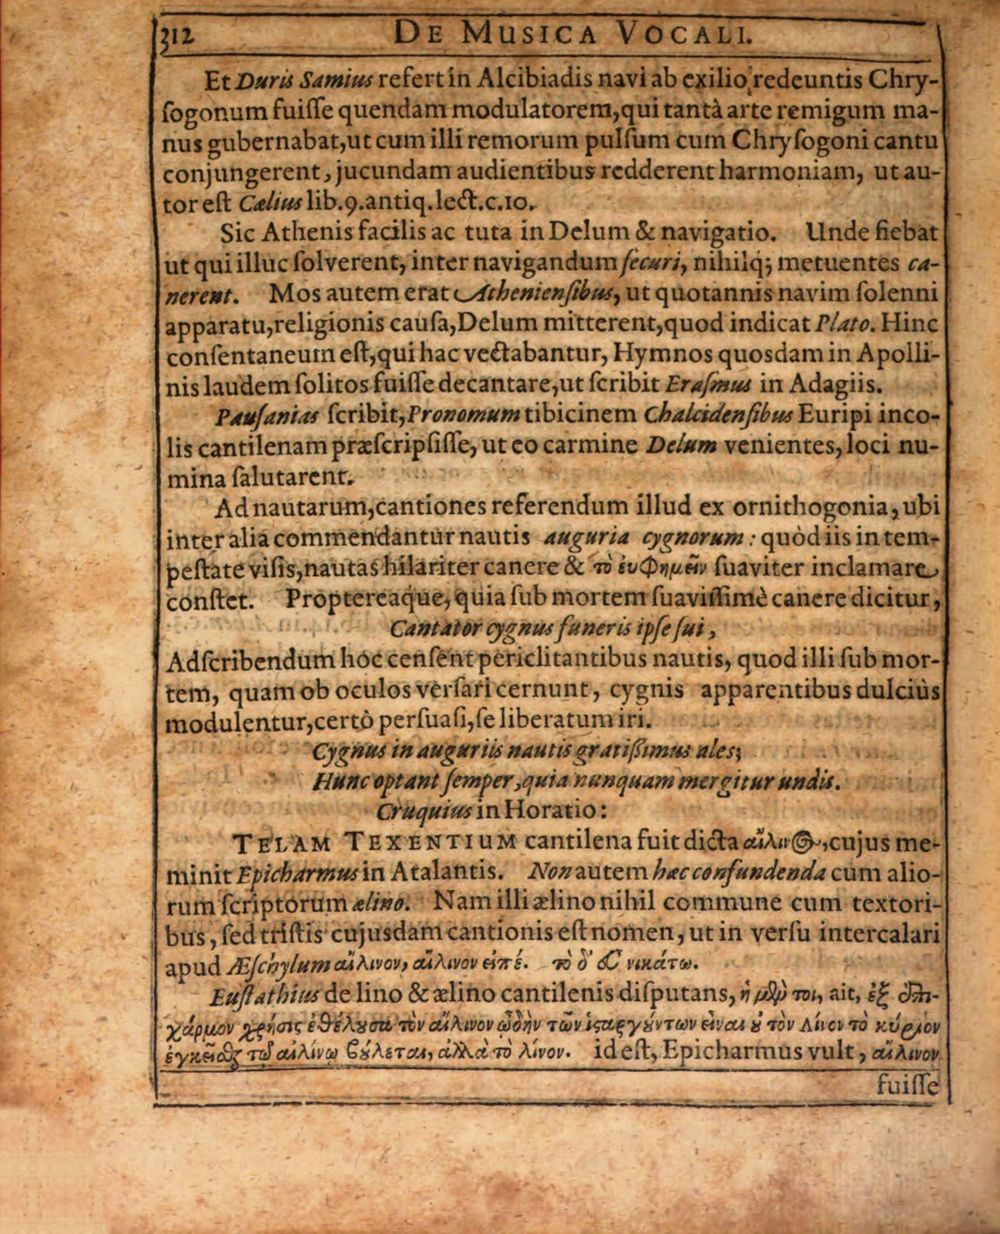 312 DE MUSICA VOCALI.
Et Duris Samius refert in Alcibiadis navi ab exilio redeuntis Chry-
ſogonum fuiſſe quendam modulatorem, qui tantâ arte remigum ma-
nus gubernabat, ut cum illi remorum pulſum cum Chryſogoni cantu
conjungerent, jucundam audientibus redderent harmoniam, ut au-
tor eſt Cælius lib.9.antiq.lect.c.10.
Sic Athenis facilis ac tuta in Delum & navigatio. Unde fiebat
ut qui illuc ſolverent, inter navigandum ſecuri, nihilq́; metuentes ca-
nerent. Mos autem erat Athenienſibus, ut quotannis navim ſolenni
apparatu, religionis cauſa, Delum mitterent, quod indicat Plato. Hinc
conſentaneum eſt, qui hac vectabantur, Hymnos quosdam in Apolli-
nis laudem ſolitos fuiſſe decantare, ut ſcribit Eraſmus in Adagiis.
Pauſanias ſcribit, Pronomum tibicinem Chalcidenſibus Euripi inco-
lis cantilenam præſcripſiſſe, ut eo carmine Delum venientes, loci nu-
mina ſalutarent.
Ad nautarum, cantiones referendum illud ex ornithogonia, ubi
inter alia commendantur nautis auguria cygnorum: quòd iis in tem-
peſtate viſis, nautas hilariter canere & τὸ ἐυφημεῖν ſuaviter inclamare
conſtet. Proptereaq́ue, quia ſub mortem ſuaviſſimè canere dicitur,
Cantator cygnus funeris ipſe ſui,
Adſcribendum hoc cenſent periclitantibus nautis, quod illi ſub mor-
tem, quam ob oculos verſari cernunt, cygnis apparentibus dulciùs
modulentur, certò perſuaſi, ſe liberatum iri.
Cygnus in auguriis nautis gratiſſimus ales;
Hunc optant ſemper, quia nunquam mergitur undis.
Cruquius in Horatio:
TELAM TEXENTIUM cantilena fuit dicta αἴλινος, cujus me-
minit Epicharmus in Atalantis. Non autem hæc confundenda cum alio-
rum ſcriptorum ælino. Nam illi ælino nihil commune cum textori-
bus, ſed triſtis cujusdam cantionis eſt nomen, ut in verſu intercalari
apud Æſchylum αἴλινον, αἴλινον εἰπέ. τὸ δ' εὖ νικάτω.
Euſtathius de lino & ælino cantilenis diſputans, ἡ μὲν τοι, ait, ἐξ ἐπι-
χάρμου χρῆσις ἐθέλουσα τὸν αἴλινον ᾠδὴν τῶν ἱστουργούντων εἶναι οὐ τὸν Λίνον τὸ κύριον
τῷ αἰλίνῳ βούλεται, ἀλλὰ τὸ λίνον. id eſt, Epicharmus vult, αἴλινον
fuiſſe